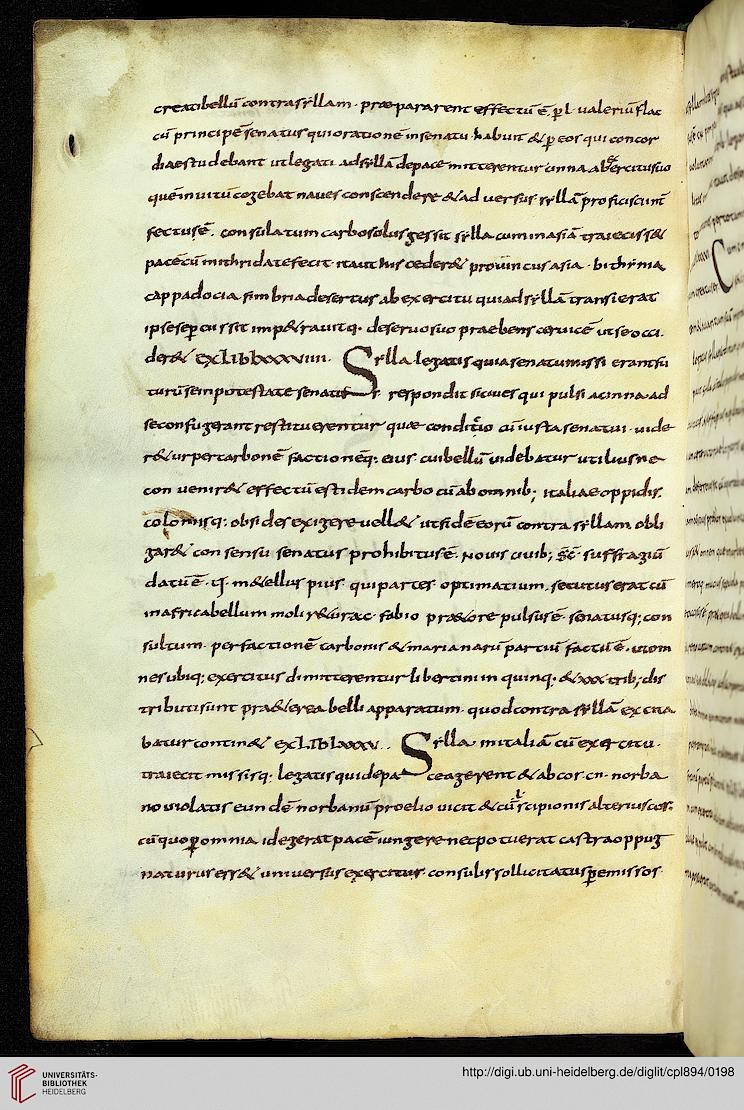 creatibellū contra syllam · praepararent effectū ē · ꝑ l · valeriū flac
cū principē senatus qui orationē in senatu · habuit & ꝑ eos qui concor
diae studebant ut legati ad syllā de pace mitterentur cinna ab exercitu suo
quē invitū cogebat naves conscendere & ad versus syllā proficisci int
fectus ē · consulatum carbo solus gessit sylla cum in asiā traiecisset
pacē cū mithridate fecit · ita ut his ceder& provincus asia · bithynia
cappadocia fimbria desertus ab exercitu qui ad syllā transierat
ipse se percussit imp&ravitq · de servo suo praebens cervicē ut se occi
der& ex LIb lxxxiiii · Sylla legatis qui a senatu missi erant fu
turū se in potestate senatus · respondit si cives qui pulsi a cinna ad
se confugerant restituerentur quae conditio cū iusta senatui · vide
r&ur per carbonē factionēq; eius cui bellū videbatur utilius ne
con venir& effectū est idem carbo cū ab omnib; italiae oppidis
colonnisq; obsides exigere vell& ut fidē eorū contra syllam obli
gar& con sensu senatus prohibitus ē · Novis civib; suffragiū
datū ē · q · m&ellus pius · qui partes optimatium secutus erat cū
in africa bellum molir&ur a · c · fabio pr&ore pulsus ē · senatusq; con
sultum · per factionē carbonis & marianarū partiū factū ē · ut om
nes ubiq; exercitus dimitterentur libertini in quinq · & xxx trib; dis
tributi sunt pr&erea belli apparatum · quod contra syllā excita
batur contin& ex LIb lxxxv · Sylla in italiā cū exercitu
traiecit missisq; legatis qui de pace agerent & ab cos · cn · norba
no violatis eundē norbanū proelio vicit & cū scipionis alterius cos ·
cū quo ꝑ omnia id egerat pacē iungere nec potuerat castra oppug
naturus ess& universus exercitus consulis sollicitatus ꝑ emissos
UNIVERSITÄTS-
BIBLIOTHEK
HEIDELBERG
http://digi.ub.uni-heidelberg.de/diglit/cpl894/0198